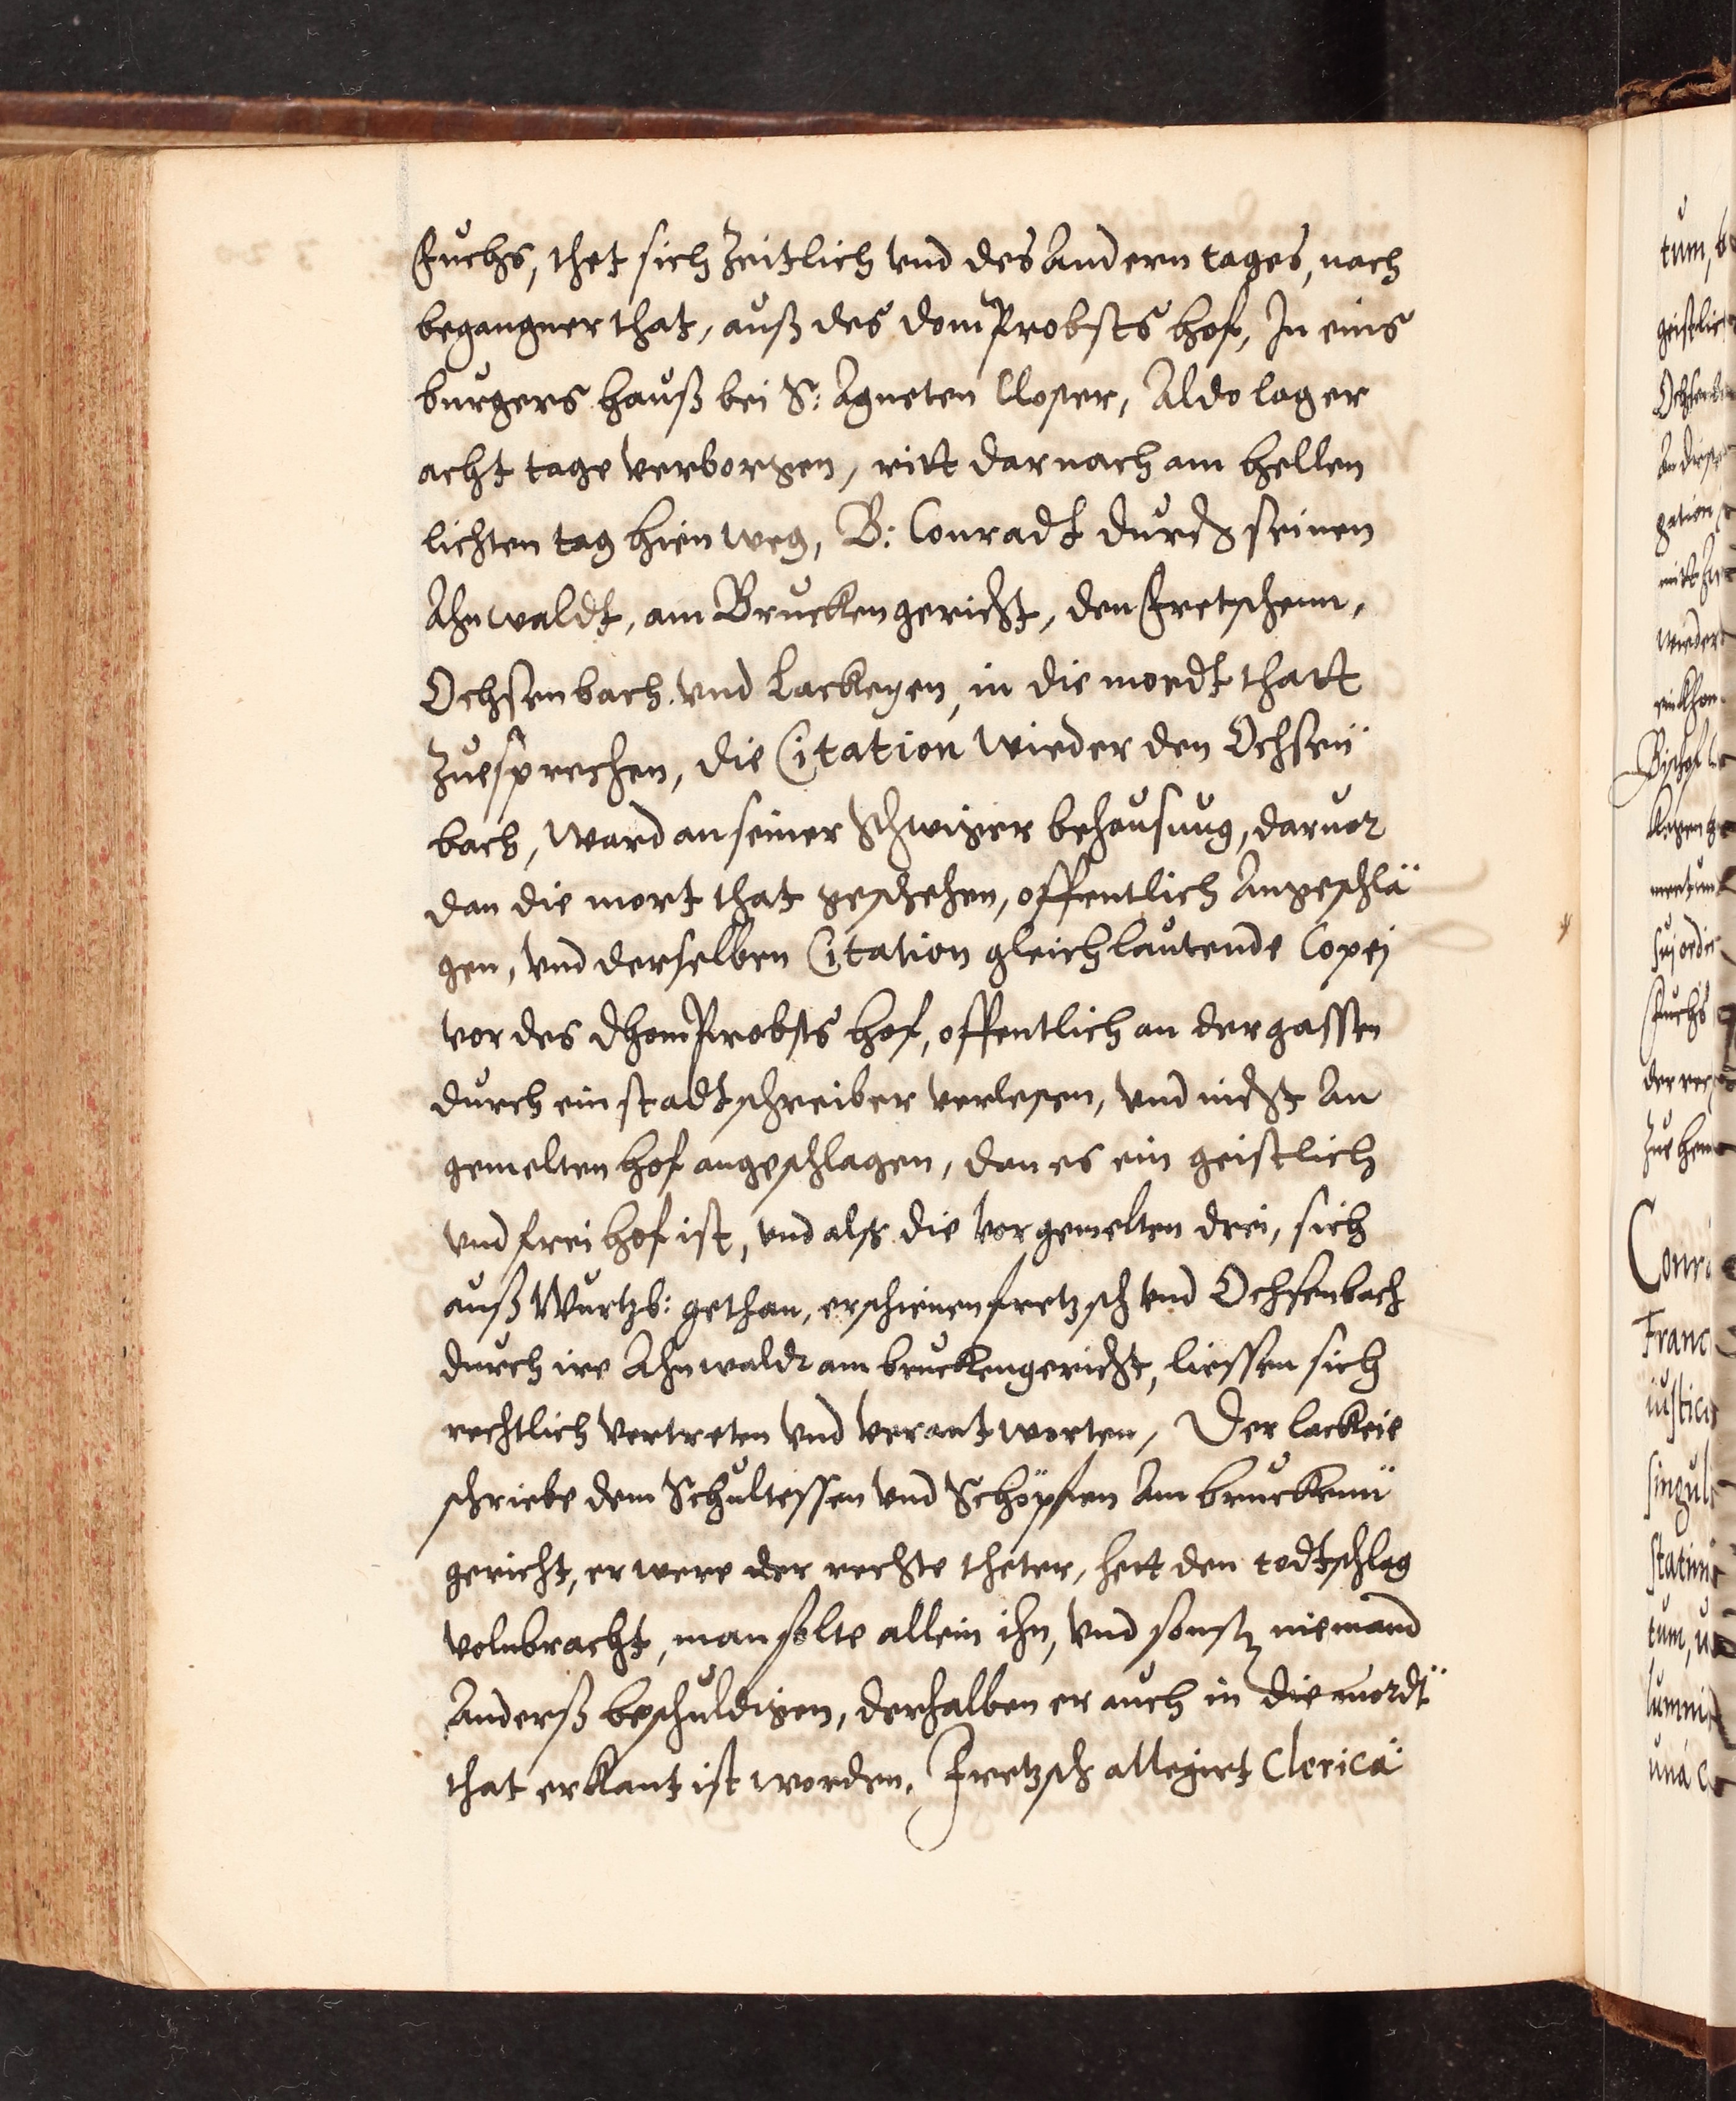 Fuchs, thet sich zeitlich vnd des Andern tages, nach
begangner that, auß des dom Probsts hof, In eins
burgers hauß bei S: Agneten Closter, Aldo lag er
acht tage verborgen, ritt darnach am hellen
lichten tag hienweg, B: Conradt durch seinen
Ahnwaldt, am Bruckengericht, den Fretschenn,
Ochsenbach vnd Lackeyen, in die mordt thatt
zuesprechen, die Citation wieder den Ochsen¨
bach, ward an seiner Schwiger behausung, daruor
dan die mort that geschehen, offentlich Angeschla¨
gen, vnd derselben Citation gleichlautende Copej
vor des dhom Probsts hof, offentlich an der gassen
durch ein stadtschreiber verlesen, vnd nicht An
gemelten hof angeschlagen, dan es ein geistlich
vnd freihof ist, vnd alß die vorgemelten drei, sich
auß Wurtzb: gethan, erschienen fretzsch vnd Ochsenbach
durch ire Ahnwaldt am bruckengericht, liessen sich
rechtlich vertreten vnd verantworten, Der lackeie
schriebe dem Schultessen vnd Schöpfen Am brucken¨
gericht, er were der rechte theter, hett den todtschlag
volnbracht, man solte allein ihn, vnd sonst niemand
Anderß beschuldigen, derhalben er auch in die mordt¨
that erkant ist worden. Fretzsch allegirt Clerica¨